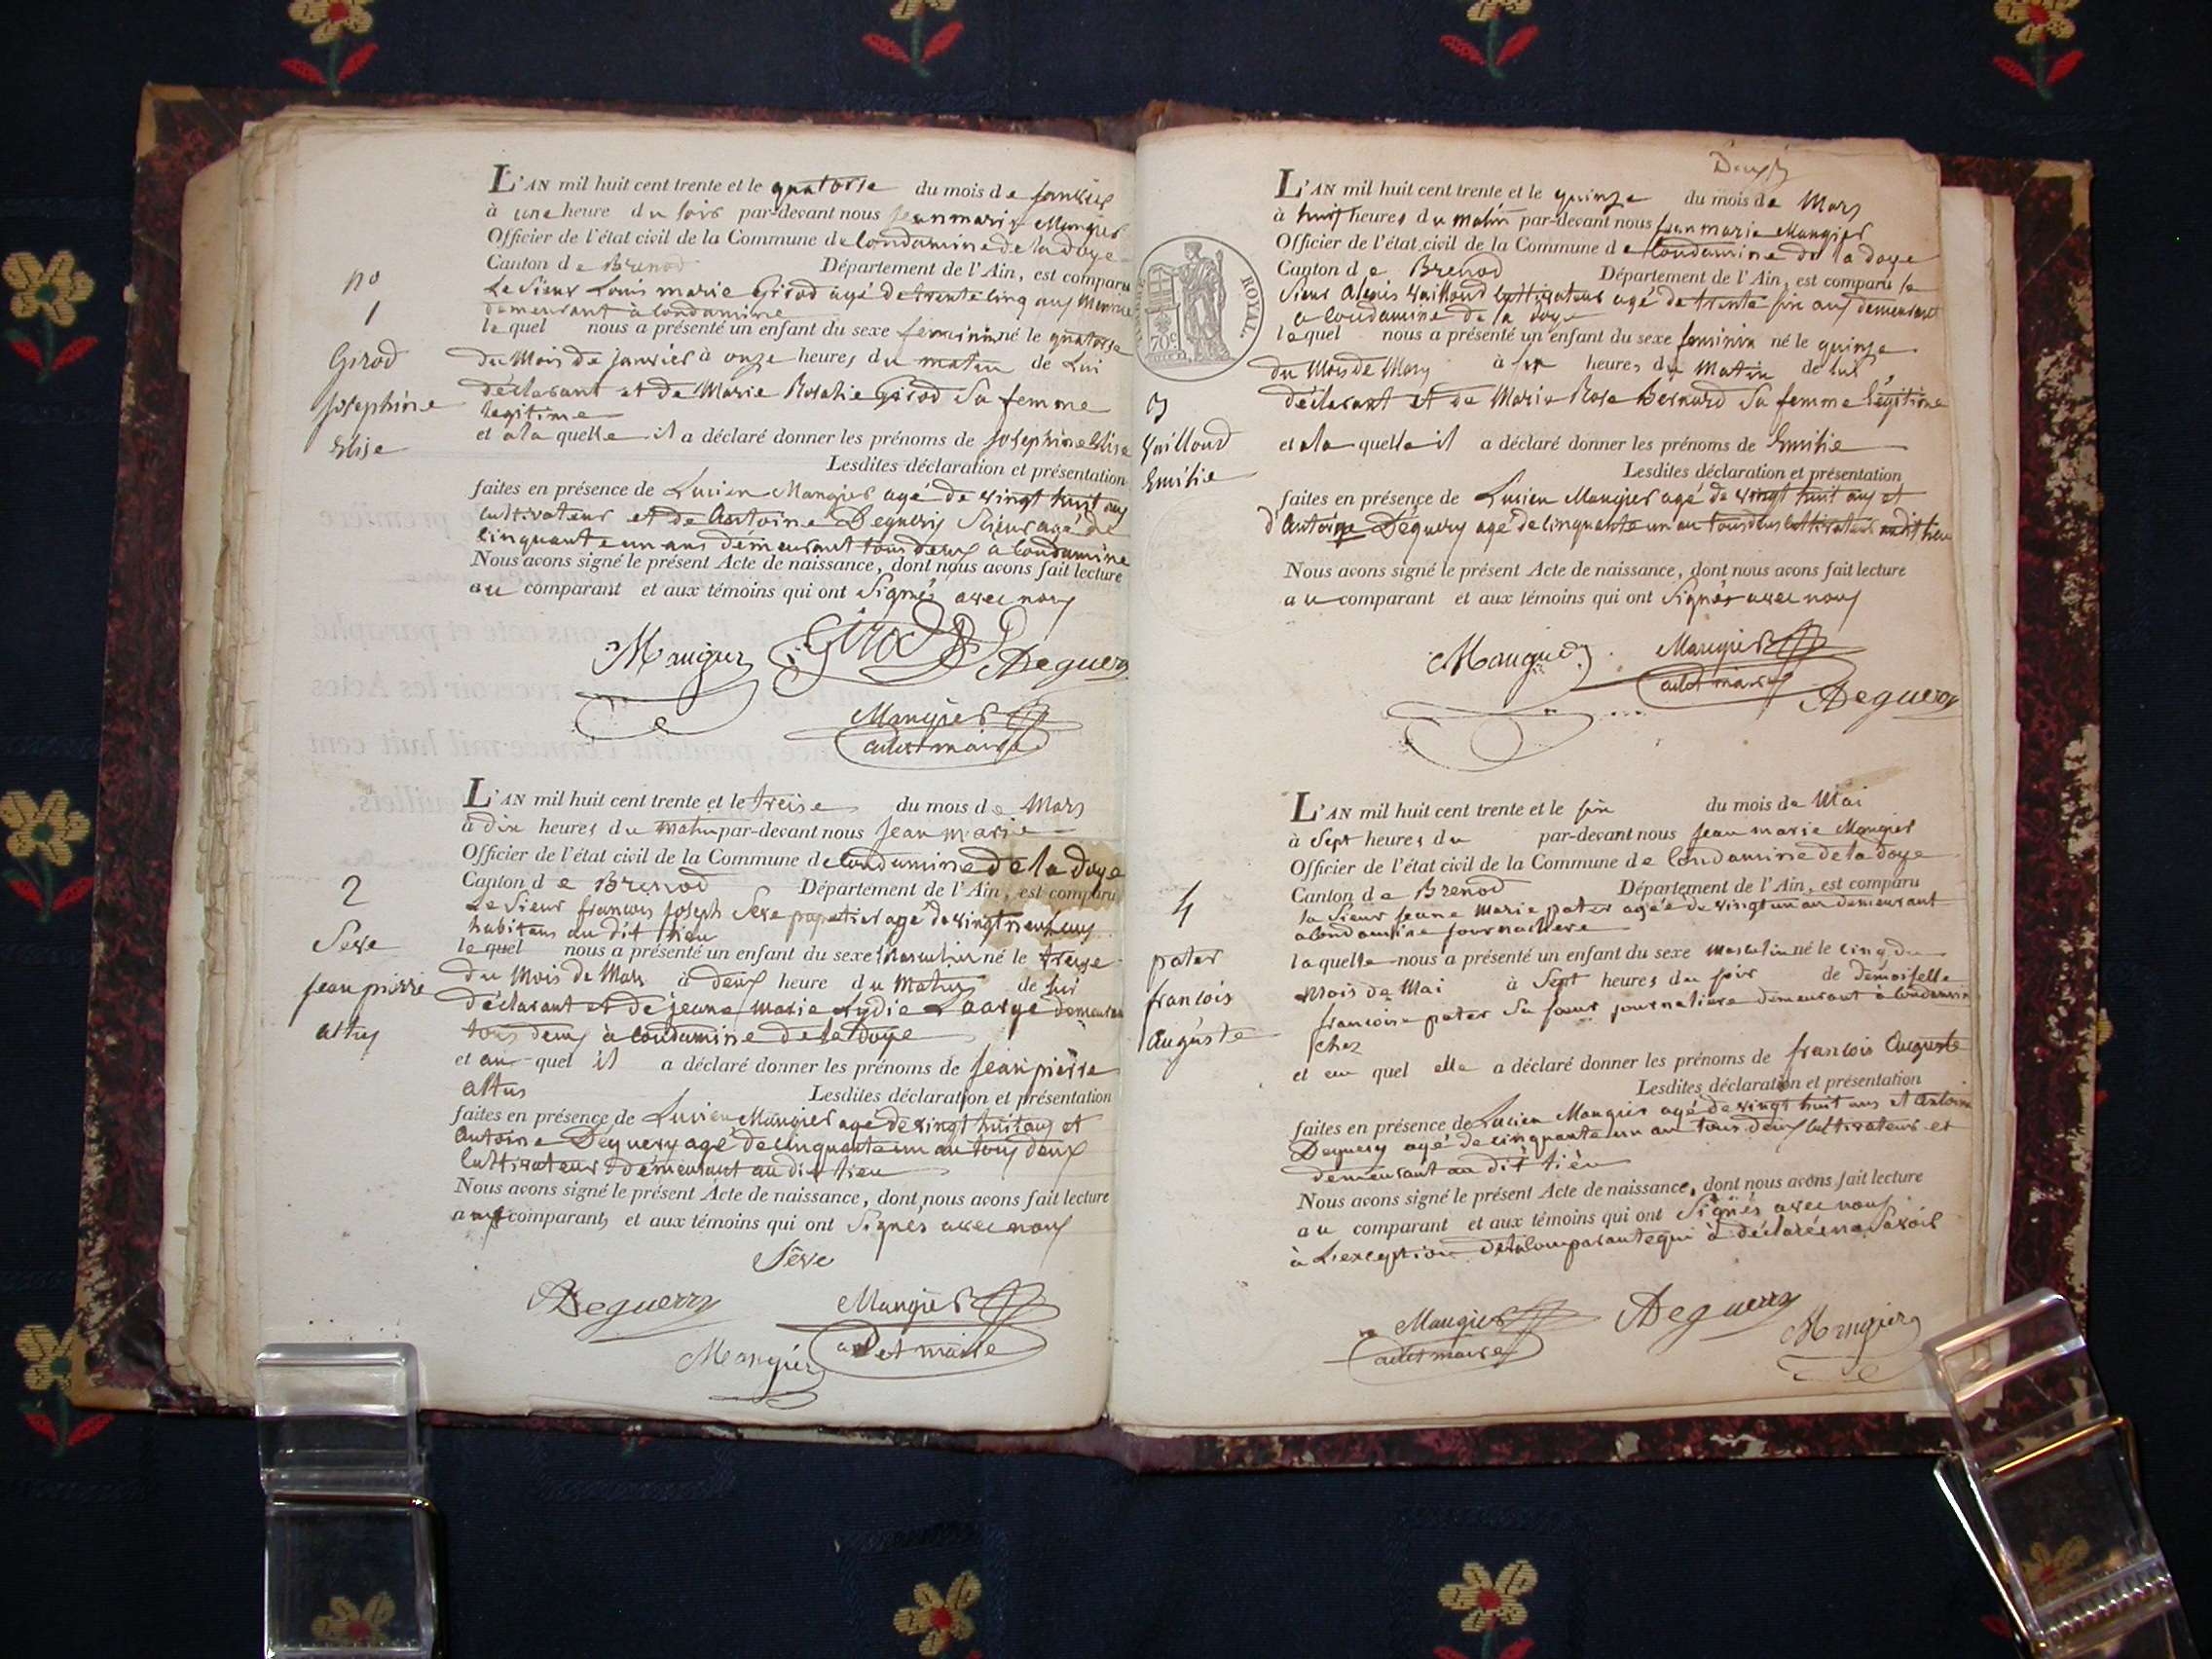 no
1
Girod
Josephine
Elise
L'AN mil huit cent trente et le quatorse du mois de janvier
à une heure du soir par-devant nous jean marie Mangier
Officier de l'état civil de la Commune de Condamine de la doye
Canton de Brenod Département de l'Ain, est comparu
Le Sieur Louis marie Girod agé de trente cinq ans
demeurant à Condamine
lequel nous a présenté un enfant du sexe feminin né le quatorse
du Mois de janvier à onze heures du matin de Lui
déclarant et de Marie Rosalie Girod Sa femme
legitime
et a la quelle il a déclaré donner les prénoms de josephine Elise
Lesdites déclaration et présentation
faites en présence de Lucien Mangier agé de vingt huit ans
cultivateur et de Antoine Deguerry Scieur agé de
cinquante un ans demeurant tous deux a Condamine
Nous avons signé le présent Acte de naissance, dont nous avons fait lecture
au comparant et aux témoins qui ont Signés avec nous
Mangier Girod Deguerry
Mangier
adet maire
2
Seve
jean pierre
altus
L'AN mil huit cent trente et le treise du mois de Mars
à dix heures du matin par-devant nous jean marie
Officier de l'état civil de la Commune de Condamine de la doye
Canton de Brenod Département de l'Ain, est comparu
Le Sieur francois joseph Seve papetier agé de vingt neuf ans
habitans au dit lieu
lequel nous a présenté un enfant du sexe Masculin né le treise
du Mois de Mars à deux heure du Matin de lui
déclarant et de jeane Marie Lydie demeuran
tous deux à Condamine de la doye
et au quel il a déclaré donner les prénoms de jean pierre
altus Lesdites déclaration et présentation
faites en présence de Lucien Mangier agé de vingt huit ans et
Antoine Deguerry agé de cinquante un an tous deux
Cultivateur demeurant au dit lieu
Nous avons signé le présent Acte de naissance, dont nous avons fait lecture
aux comparants et aux témoins qui ont Signés avec nous
Sève
Deguerry Mangier
Mangier adet maire
Deux
ROYAL.
70c
3
Vailloud
Emilie
L'AN mil huit cent trente et le quinze du mois de Mars
à huit heures du matin par-devant nous jean marie Mangier
Officier de l'état civil de la Commune de Condamine de la doye
Canton de Brenod Département de l'Ain, est comparu le
Sieur Alexis Vailloud Cultivateur agé de trente six ans demeurant
a Condamine de la doye
lequel nous a présenté un enfant du sexe feminin né le quinze
du Mois de Mars à six heures du Matin de lui
déclarant et de Marie Rose Bernard Sa femme légitime
et a la quelle il a déclaré donner les prénoms de Emilie
Lesdites déclaration et présentation
faites en présence de Lucien Mangier agé de vingt huit ans et
d'Antoine Deguerry agé de cinquante un an tous deux cultivateur audit lieu
Nous avons signé le présent Acte de naissance, dont nous avons fait lecture
au comparant et aux témoins qui ont Signés avec nous
Mangier Mangier
adet maire Deguerry
4
pater
francois
Auguste
L'AN mil huit cent trente et le six du mois de Mai
à Sept heures du par-devant nous jean marie Mangier
Officier de l'état civil de la Commune de Condamine de la doye
Canton de Brenod Département de l'Ain, est comparu
la Sieur jeane Marie pater agée de vingt un an demeurant
a Condamine journaliere
laquelle nous a présenté un enfant du sexe masculin né le cinq du
Mois de Mai à Sept heures du soir de demoiselle
francoise pater Sa soeur journaliere demeurant à Condamin
chez
et au quel elle a déclaré donner les prénoms de francois Auguste
Lesdites déclaration et présentation
faites en présence de Lucien Mangier agé de vingt huit ans et Antoine
Deguerry agé de cinquante un an tous deux Cultivateurs et
demeurant au dit lieu
Nous avons signé le présent Acte de naissance, dont nous avons fait lecture
au comparant et aux témoins qui ont Signés avec nous
à L'exception de la Comparante qui à déclaré ne Savoir
Mangier Deguerry Mangier
adet maire